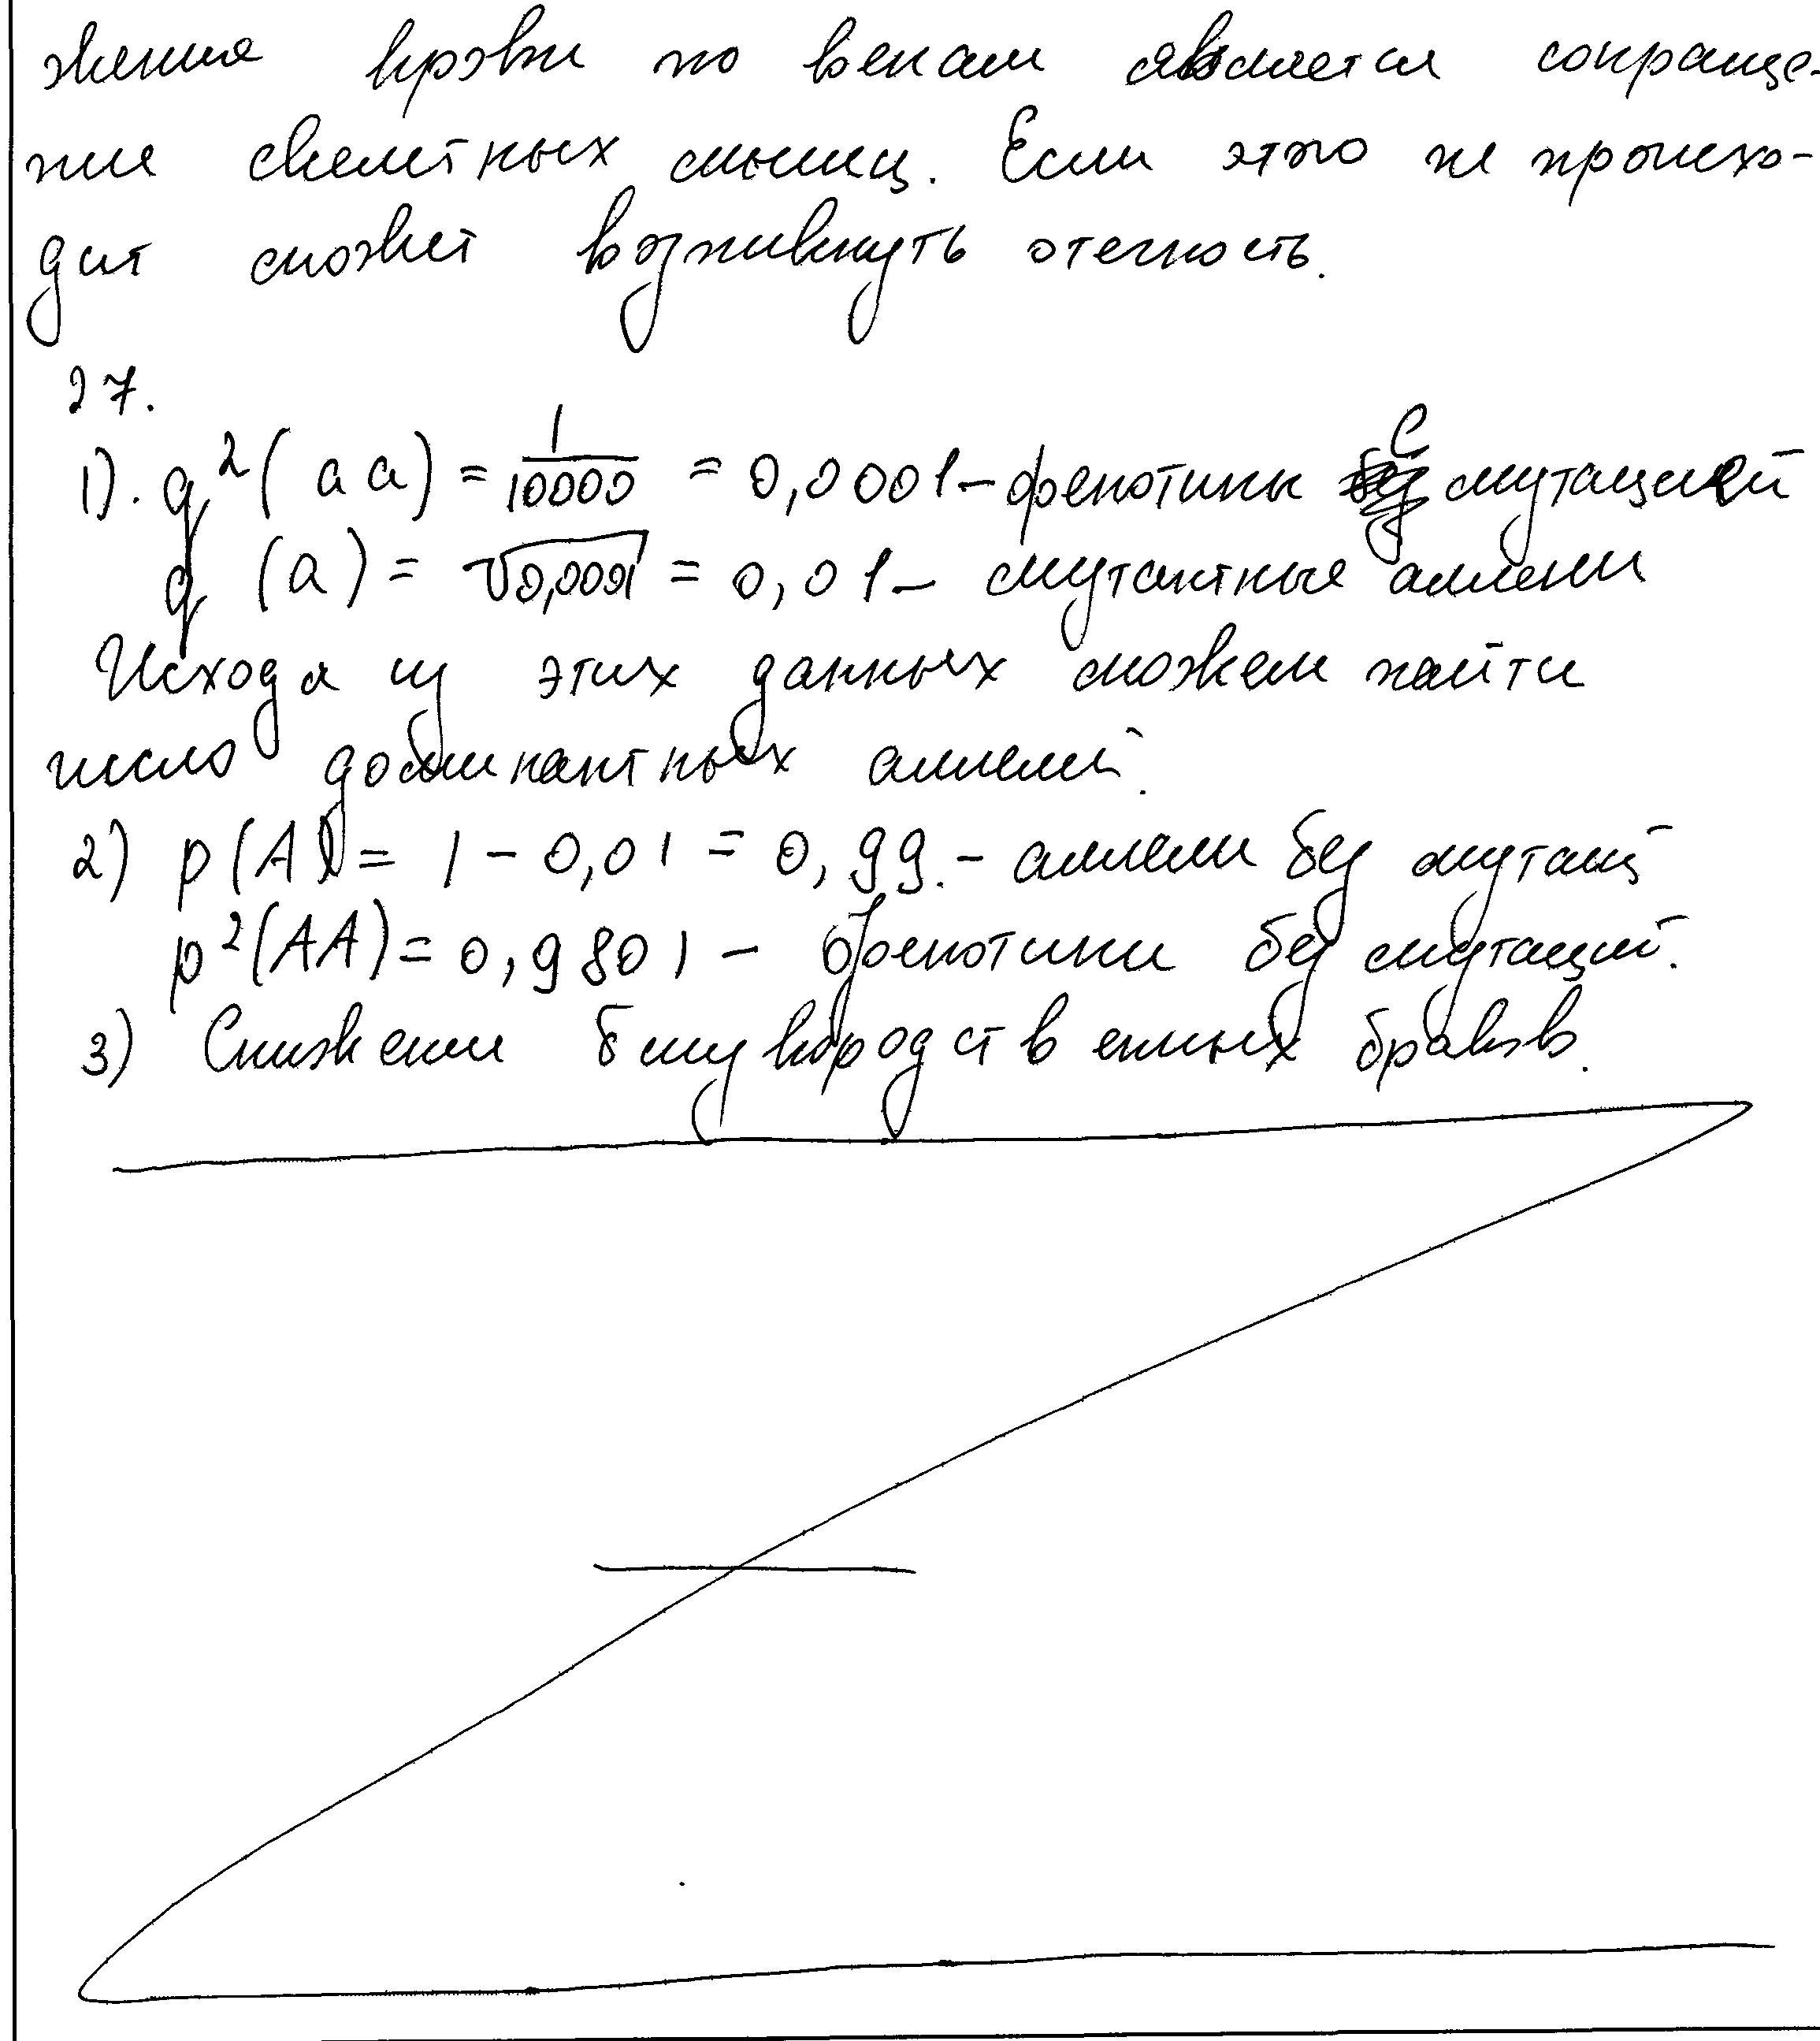 жения крови по венам является сокраще-
ние скелетных мышц. Если этого не происхо-
дит может возникнуть отечность.
27.
1). q²(aa) = 1/10000 = 0,0001 - фенотипы с мутацией
q (a) = √0,0001 = 0,01 - мутантные аллели
Исходя из этих данных можем найти
число доминантных аллелей.
2) p(A) = 1 - 0,01 = 0,99. - аллели без мутац
p²(AA) = 0,9801 - фенотипы без мутаций.
3) Снижение близкородственных браков.